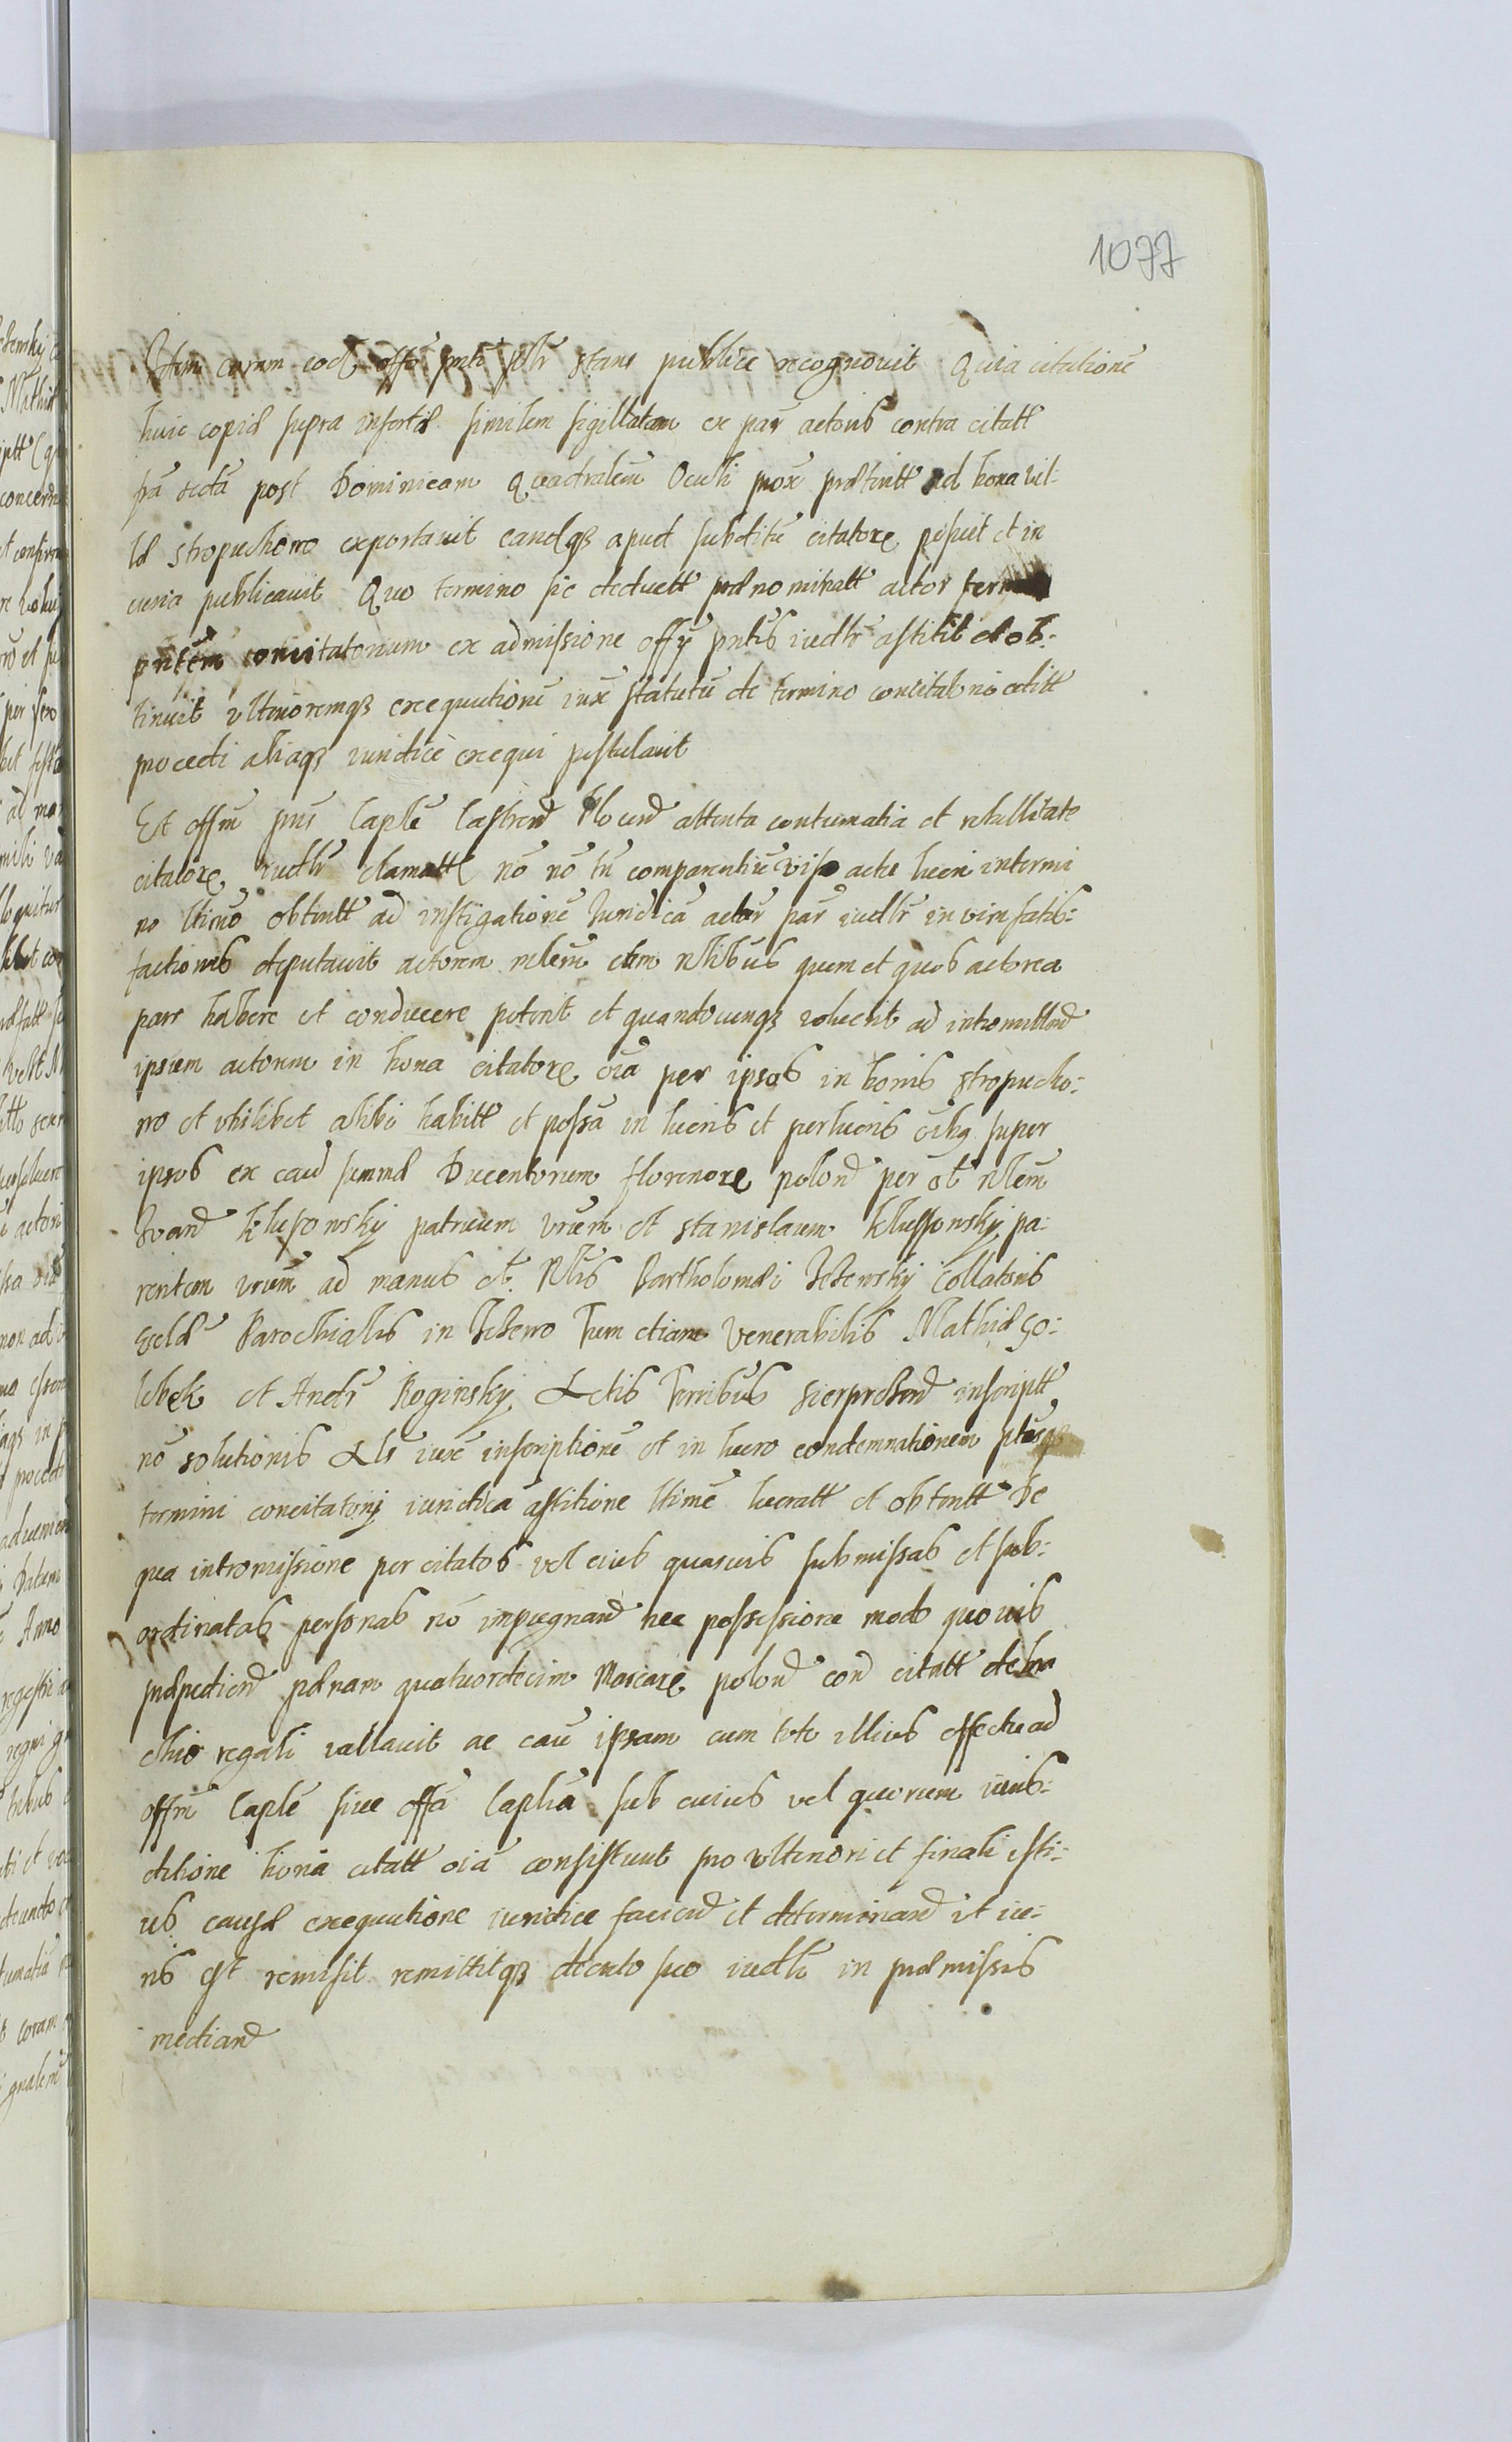 1077
Item coram eodē offō pnti plr stans publice recognouit Quia citationē
huic copiæ supra insertæ similem sigillatam ex par actoris contra citatt
fra scda post Dominicam Quadralem Oculi prox præteritt ad bona vil:
læ stropuchowo exportauit eandq3 apud subditū citatorȩ posuit et in
curia publicauit Quo termino sic deductt prænominatt actor
pntem concitatorium ex admissione offÿ pntis iudlr astitit et ob:
tinuit vlterioremq3 exequutionē iux statutū de termino concitat nō
procedi aliaq3 iuridicè exequi postulauit
Et offm pns Capłe Castren Plocen attenta contumatia et rebellitate
citatorȩ iudlr clamatt nō nō tn comparentiū viso actu lucri in termi
no ltimo obtentt ad instigationē Juridicā actor par iudlr in vim satis:
factionis deputauit actorem mlem cum nlibus quem et quos actorea
pars habere et conducere poterit et quandocunq3 voluerit ad intromittend
ipsum actorem in bona citatorȩ oīa per ipsos in bonis stropucho:
wo et vbilibet alibi habitt et possa in lucris et perlucris oībg super
ipsos ex cau summæ Ducentorum florenorȩ polon per ol nlem
Joan Klusowsky patruum vrum et stanislaum Klussowsky pa:
rentem vrum ad manus ol Nlis Bartholomæi Jezewsky Collatoris
Ecclæ Parochialis in Jezewo Tum etiam Venerabilis Mathiæ Go:
lebek et Andr Roginsky Actis Terribus Sierprcen inscriptt
nō solutionis Als iux inscriptionē et in lucro condemnationem ptusq3
termini concitatorÿ iuridica astitione ltime lucratt et obtentt De
qua intromissione per citatos vel eius quasuis submissas et sub:
ordinatas personas nō impugnand nec possessione modo quouis
præpediend pænam quatuordecim Marcarȩ polon con citatt de bra
chio regali vallauit ac cau ipsam cum toto illius effectu ad
offm Capłe siue offa Caplia sub cuius vel quorum iuris:
ditione bona citatt oīa consistunt pro vlteriori et finali isti:
us causæ exequutione iuridice faciend et determinand vt iu:
ris est remisit remittitq3 decreto suo iudlr in præmissis
mediand